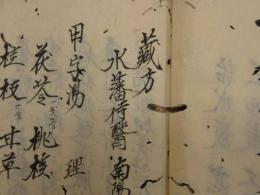 藏方
水藩侍醫 南陽
甲字湯 理
茯苓 桃核
桂枝 甘草